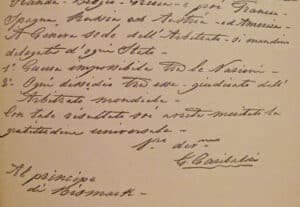 Olanda - Belgio - Svezia - e poi Francia -
Spagna, Russia ed Austria - ed America -
A Geneva sede dell'Arbitrato - si mandino
delegati d'ogni Stato -
1° Guerra impossibile tra le Nazioni -
2° Ogni dissidio tra esse - giudicato dell'
Arbitrato mondiale -
Con tale risultato voi avrete meritato la
gratitudine universale -
G. Garibaldi
Al principe
di Bismark -